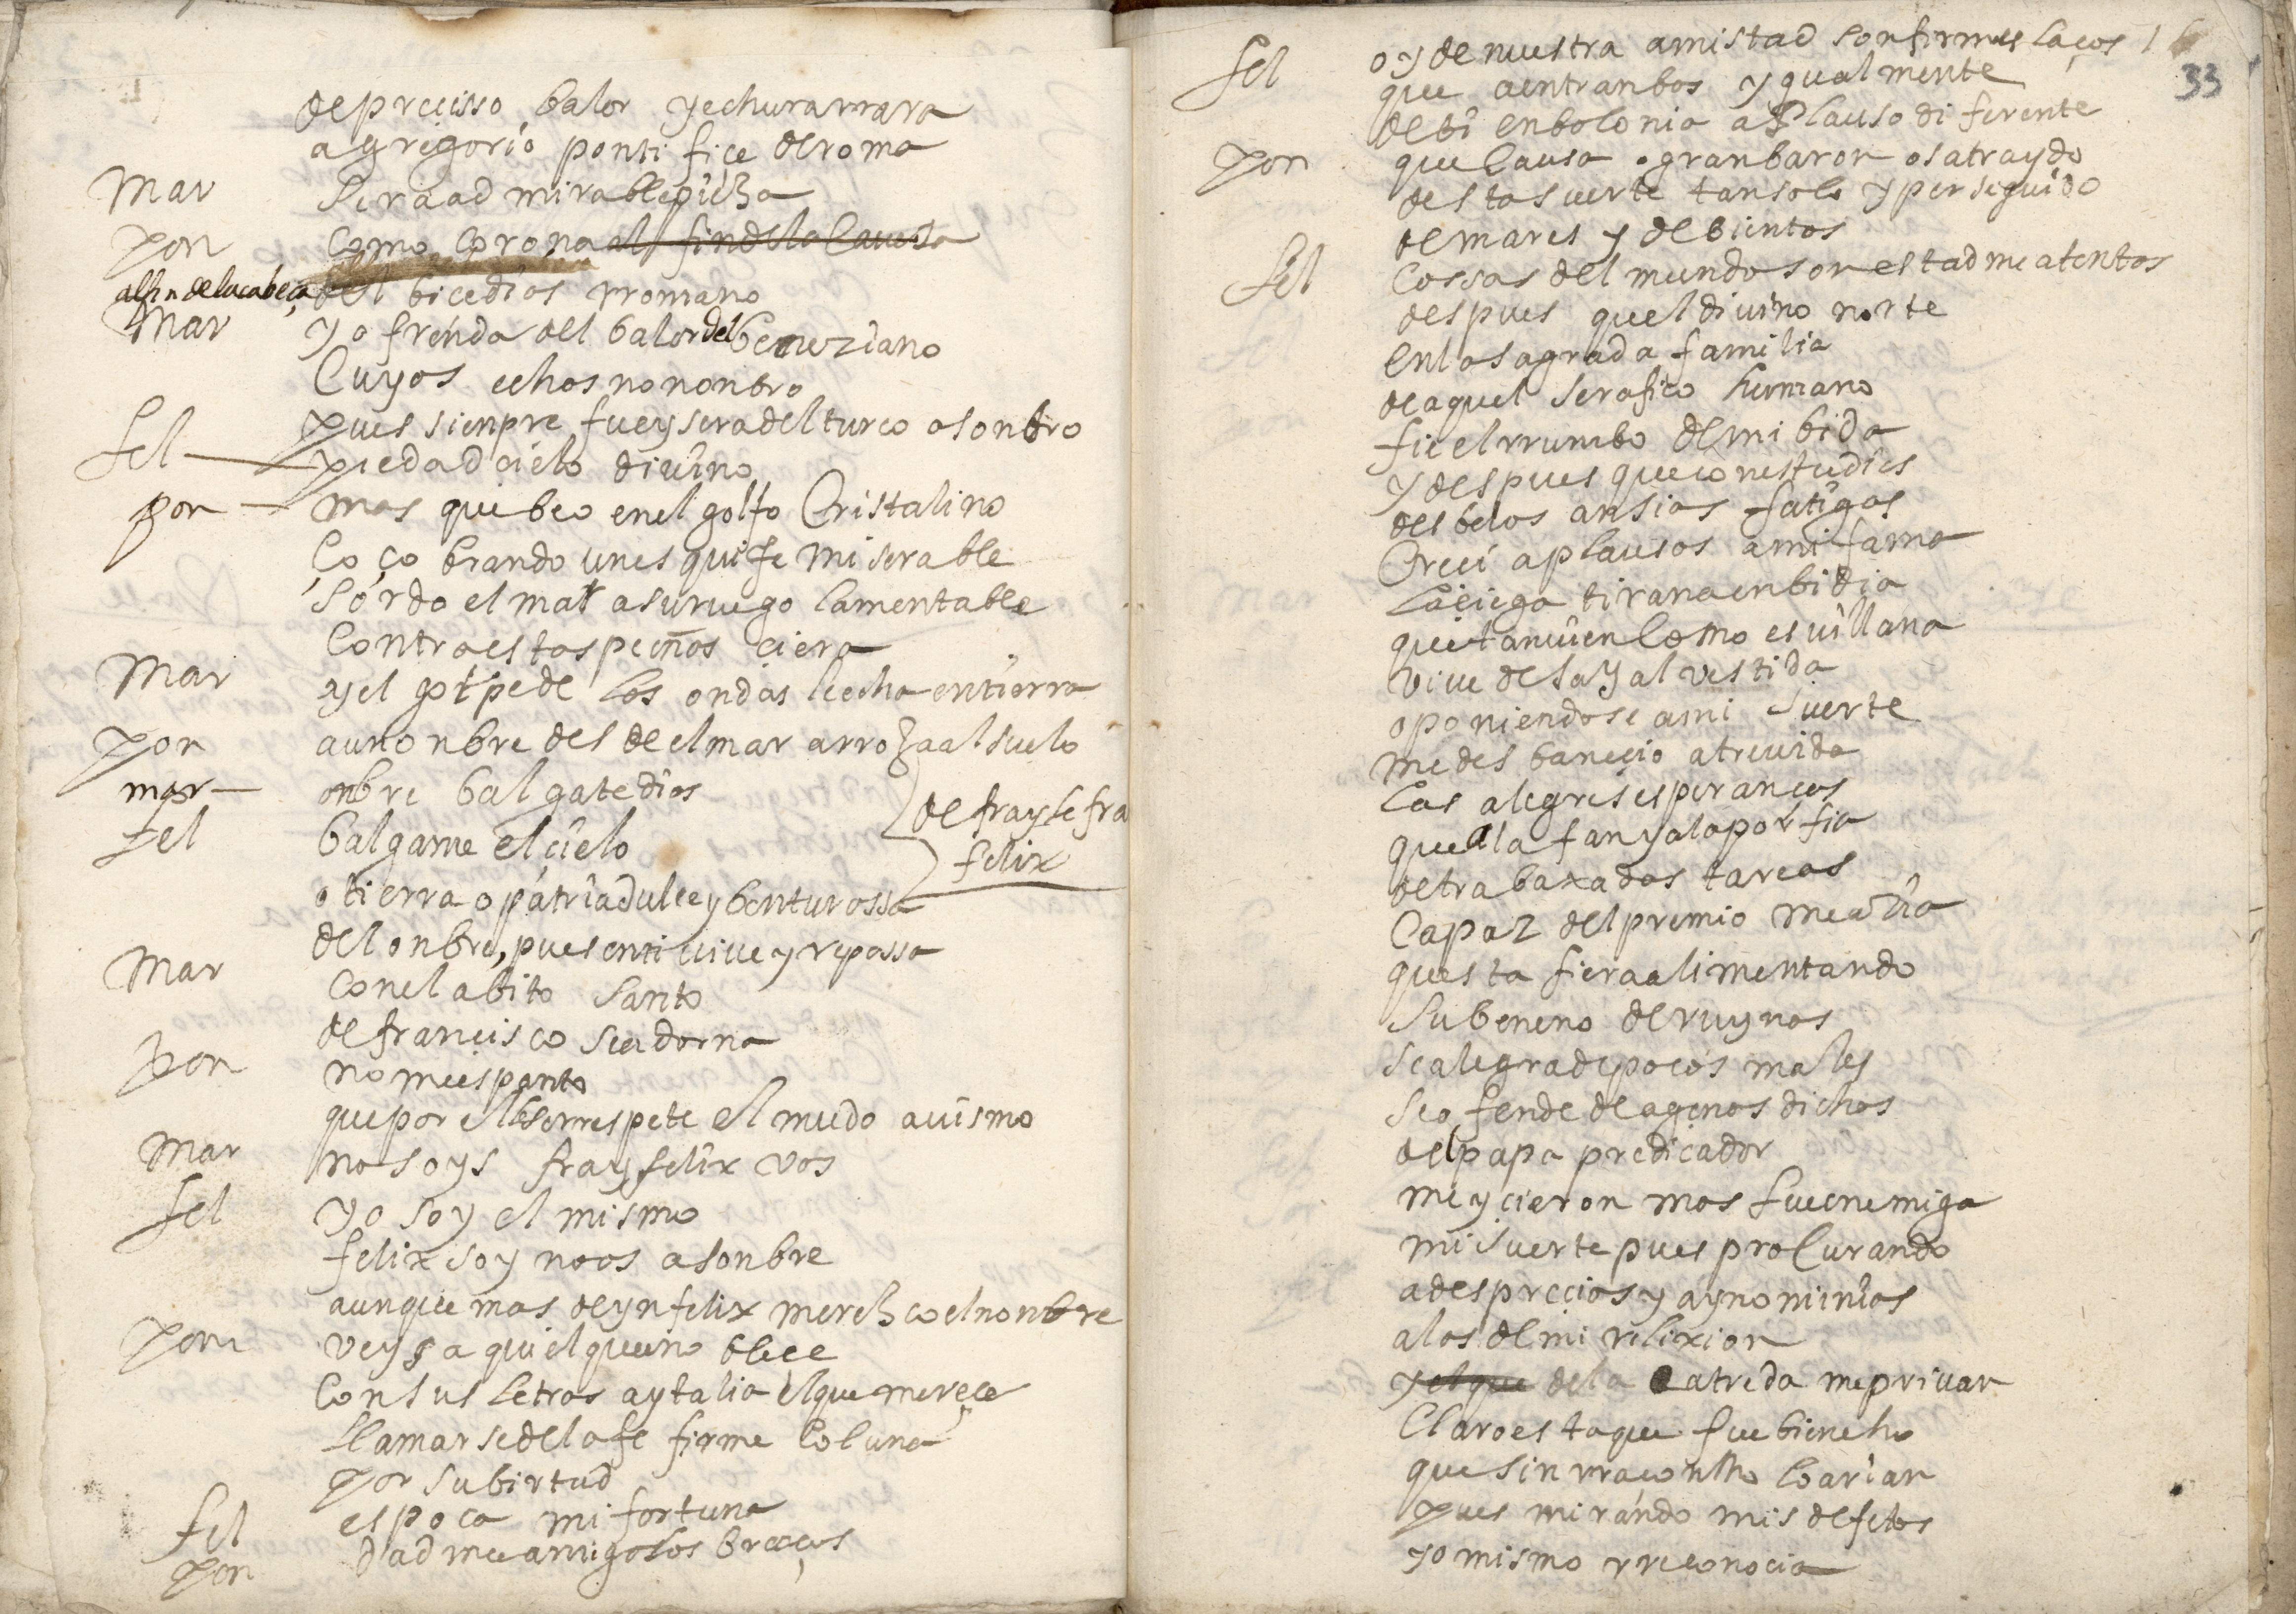 de precisso balor y echura rrara
a gregorio pontifice de roma
Mar sera admirable pieza
pon como corona al fin de la cauesa
al fin de la cabeça del bicedios rromano
Mar y ofrenda del balor del beneziano
cuyos echos no nonbro
pues sienpre fue y sera del turco asonbro
fel piedad cielo divino
pon mas que beo en el golfo Cristalino
çoçobrando un esquife miserable
sordo el mar a su ruego lamentable
contra estas peñas ciera
Mar y el golpe de las ondas le echa en tierra
pon a un onbre desde el mar arroza al suelo
mar onbre balgate dios
fel balgame el cielo
de frayle fra
felix
o tierra o patria dulce y benturossa
del onbre, pues en ti vive y repossa
Mar con el abito santo
de francisco se adorna
pon no me espanto
que por el le respete el mudo auismo
Mar no soys fray felix vos
fel yo soy el mismo
felix soy no os asonbre
aunque mas de ynfelix merezco el nonbre
pon veys aqui el que ennoblece
con sus letras a ytalia el que merece
llamarse de la fe firme coluna
por su birtud
fel es poca mi fortuna
pon dadme amigo los braços
16
33
fel oy de nuestra amistad son firmes laços
que a entranbos ygualmente
debi en bolonia aplauso diferente
pon que causa o gran baron os a traydo
desta suerte tan solo y perseguido
de mares y de bientos
fel cossas del mundo son estadme atentos
despues que el divino norte
en la sagrada familia
de aquel serafico hermano
fie el rrumbo de mi bida
y despues que con estudios
desbelos ansias fatigas
creci aplausos a mi fama
la ciega tirana enbidia
que tanvien como es villana
vive de sayal vestida
oponiendose a mi suerte
me desbanecio atrevida
las alegres esperanças
que al afan y a la porfia
de trabaxadas tareas
capaz del premio me acia
questa fiera alimentando
su beneno de ruynas
se alegra de pocos males
se ofende de agenas dichas
del papa predicador
me ycieron mas fue enemiga
mi suerte pues procurando
a desprecios y a ynominias
a los de mi relixion
y el que de la catreda me privan
claro esta que fue bien echo
que sin rraçon no lo arian
pues mirando mis defetos
yo mismo rreconocia